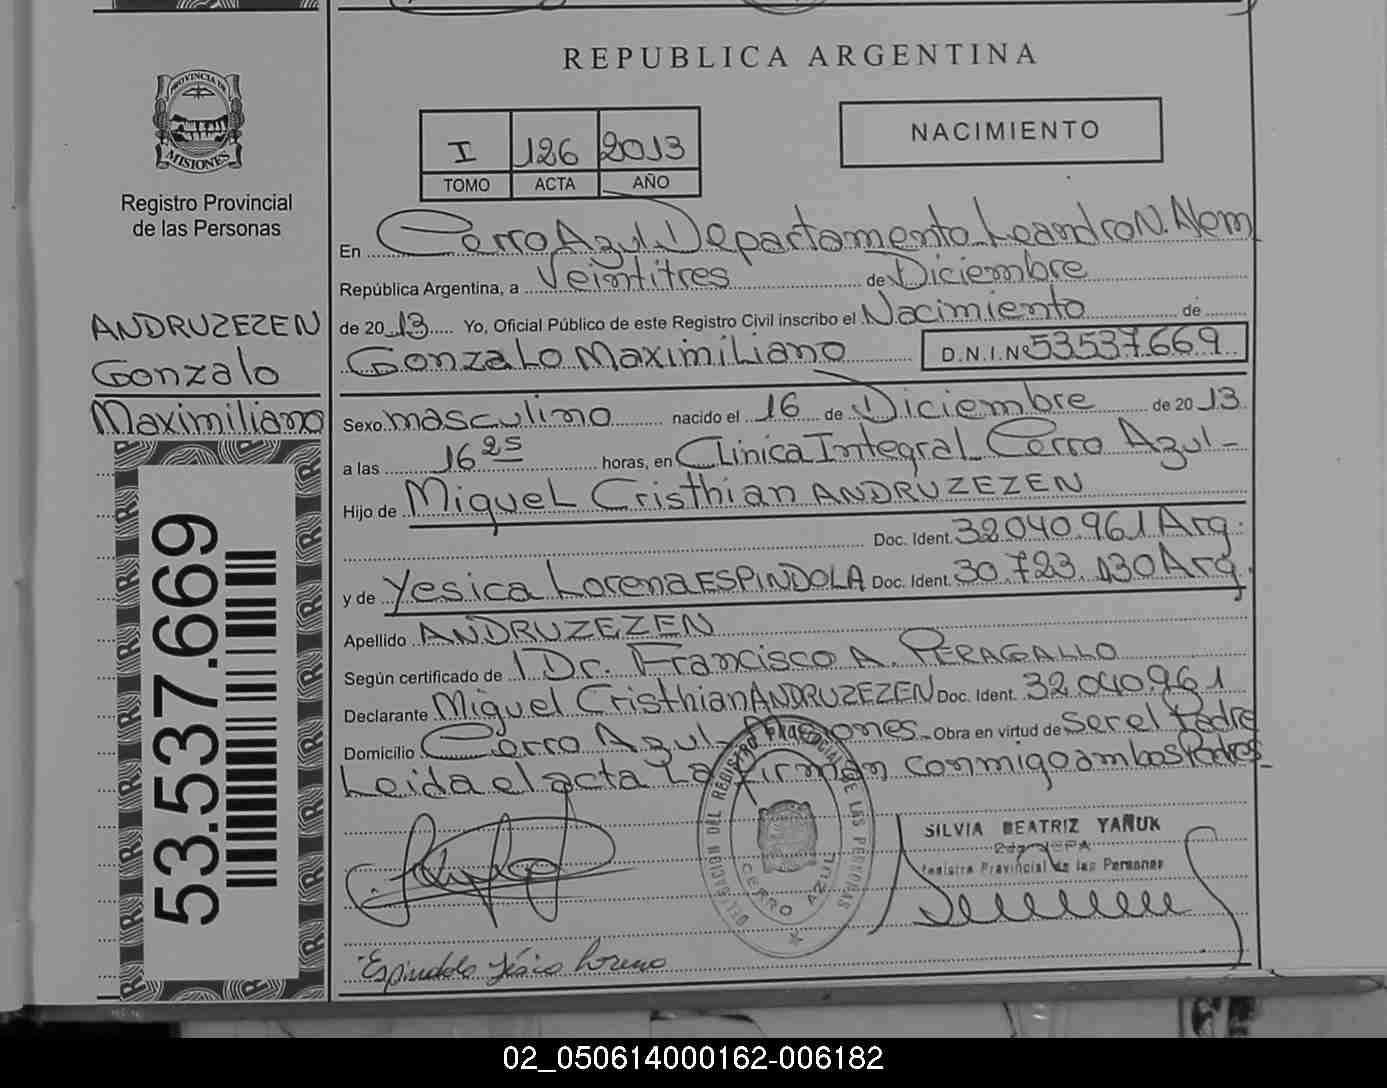 REPUBLICA ARGENTINA
PROVINCIA DE
MISIONES
Registro Provincial
de las Personas
I 126 2013
TOMO ACTA AÑO
NACIMIENTO
ANDRUZEZEN
Gonzalo
Maximiliano
53.537.669
En Cerro Azul Departamento Leandro N. Alem
República Argentina, a Veintitres de Diciembre
de 2013 Yo, Oficial Público de este Registro Civil inscribo el Nacimiento de
Gonzalo Maximiliano D.N.I.Nº 53537.669
Sexo masculino nacido el 16 de Diciembre de 2013
a las 16 25 horas, en Clinica Integral Cerro Azul-
Hijo de Miguel Cristhian ANDRUZEZEN
Doc. Ident. 32.040.961 Arg.
y de Yesica Lorena ESPINDOLA Doc. Ident. 30.723.130 Arg.
Apellido ANDRUZEZEN
Según certificado de 1 Dr. Francisco A. PERAGALLO
Declarante Miguel Cristhian ANDRUZEZEN Doc. Ident. 32.040.961
Domicilio Cerro Azul-Misiones- Obra en virtud de ser el Padre
Leida el acta La firman conmigo ambos Padres-
DELEGACION DEL REGISTRO PROVINCIAL DE LAS PERSONAS
CERRO AZUL
SILVIA BEATRIZ YAÑUK
Registro Provincial de las Personas
Espindola Yésica Lorena
02_050614000162-006182